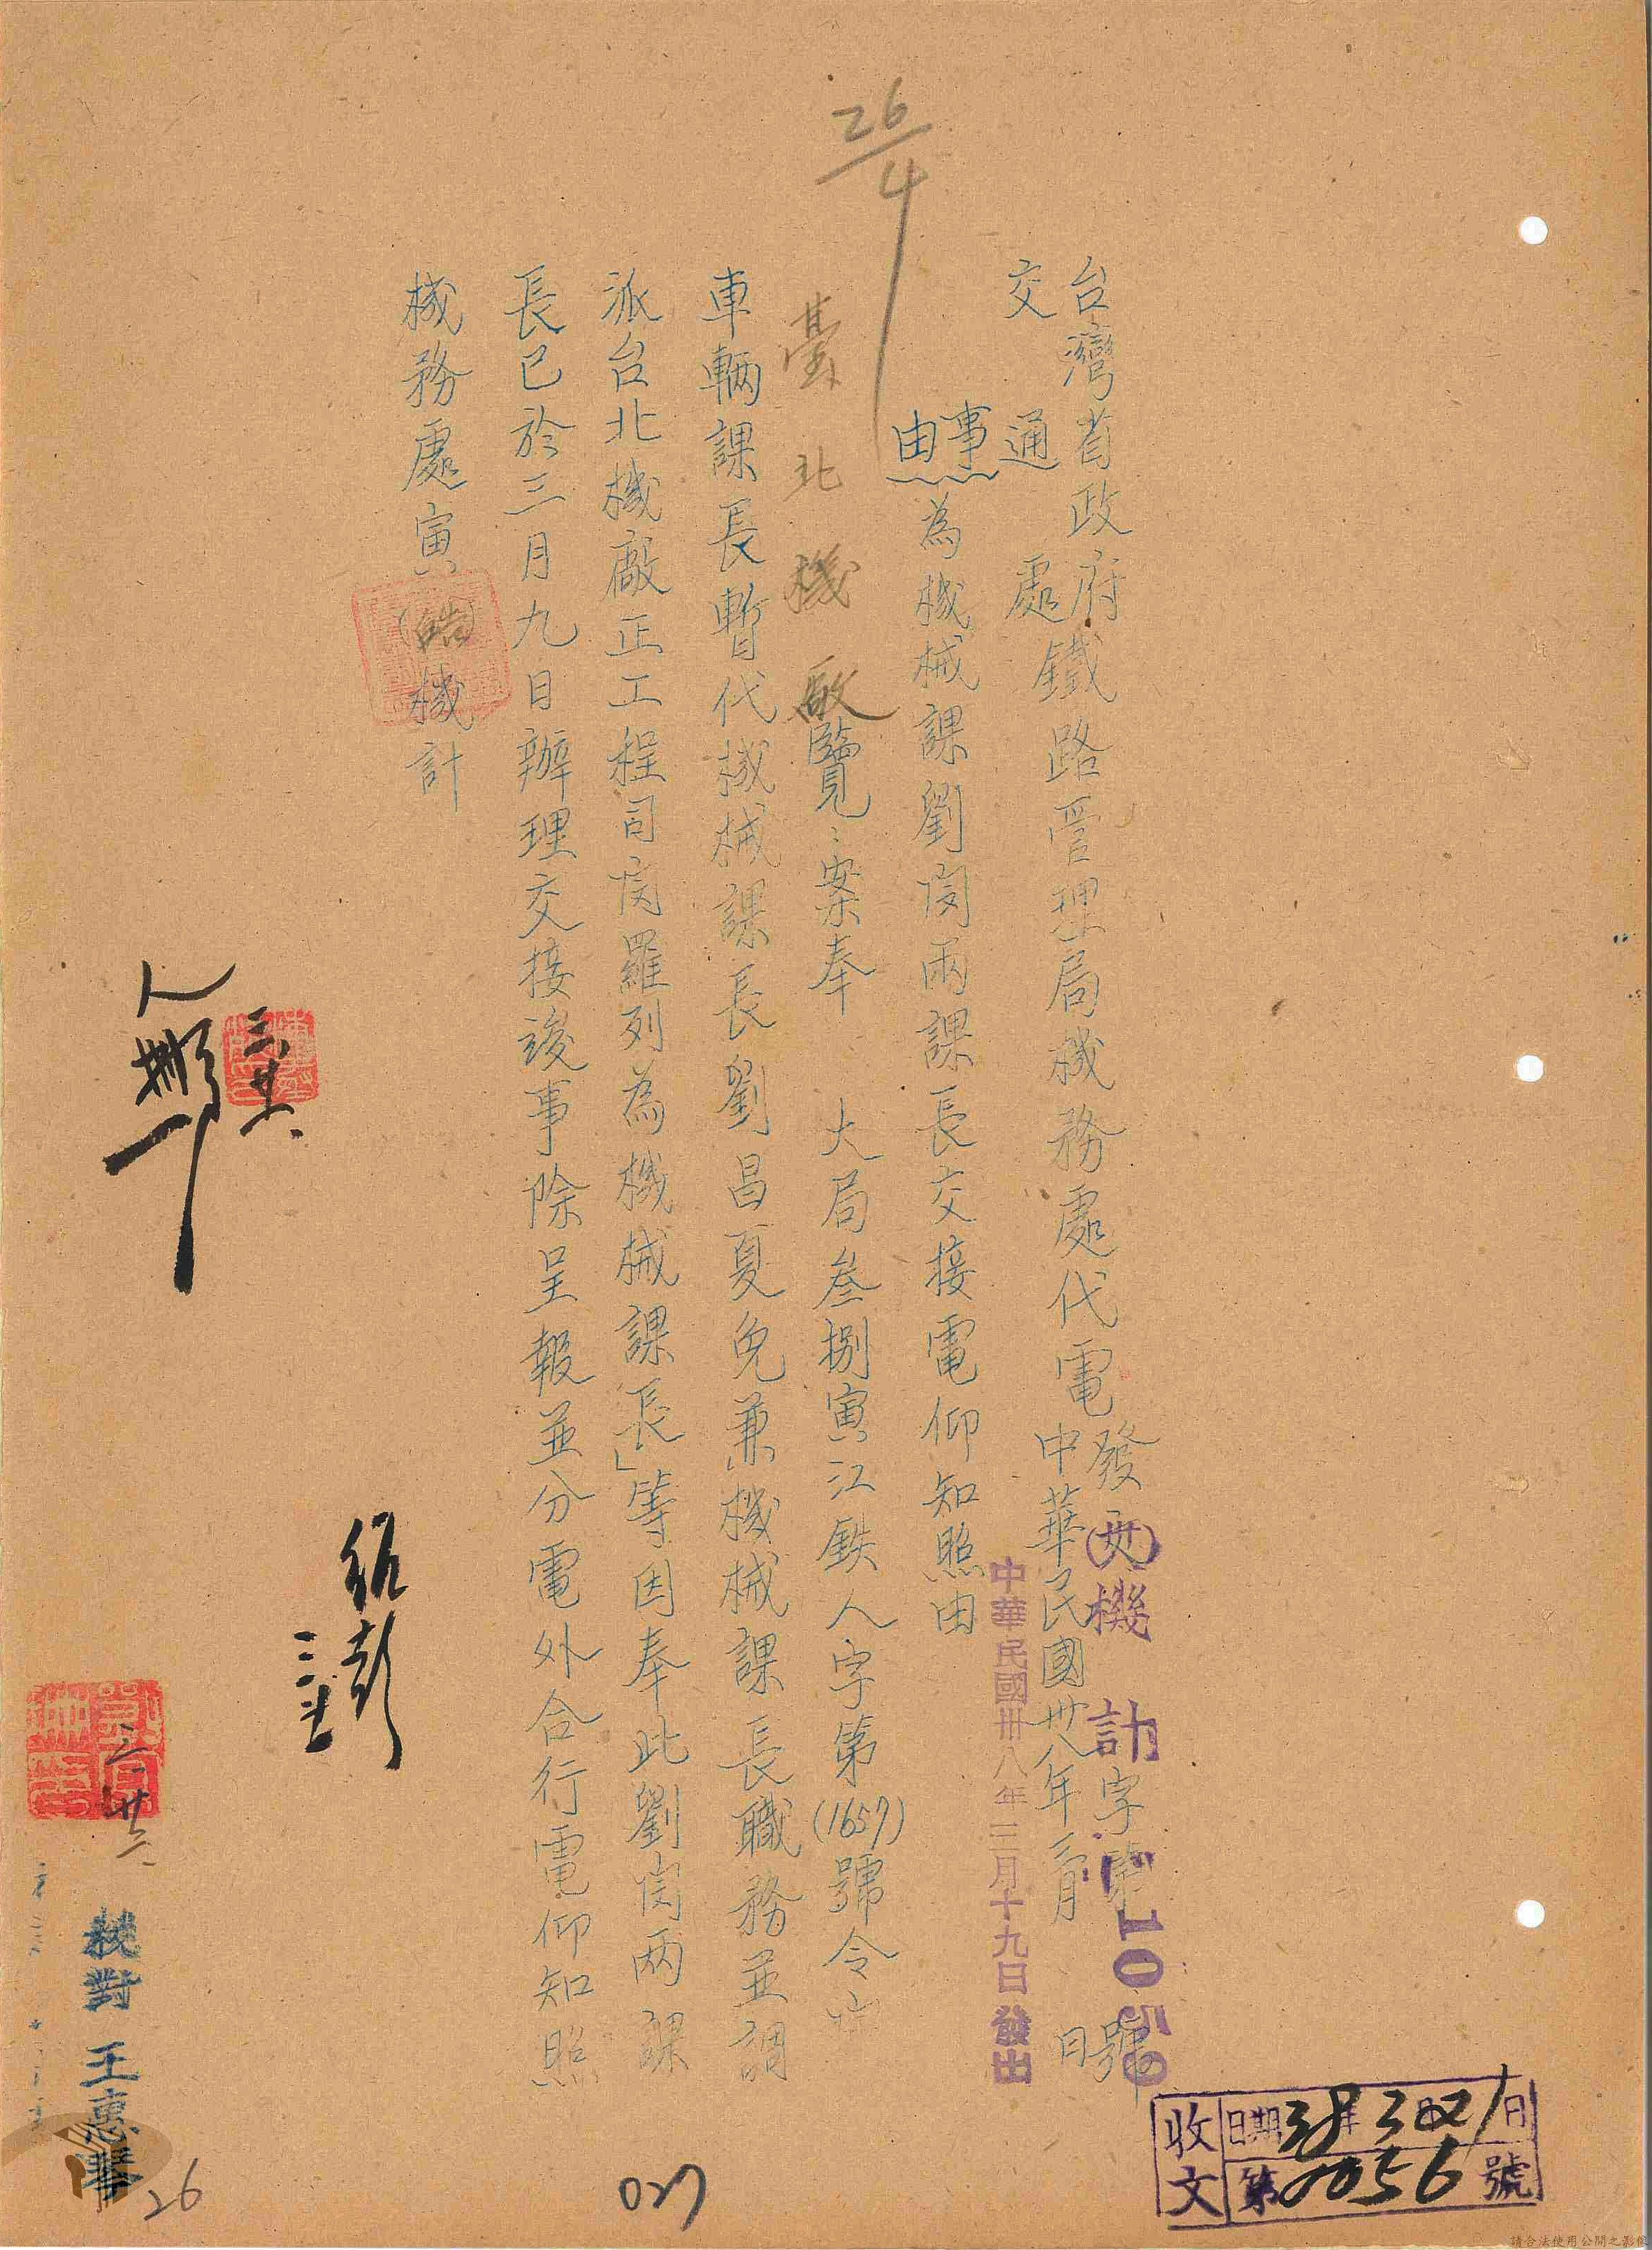 26/4
台灣省政府鐵路管理局機務處代電
交通處
發(卅八)機計字第1059號
中華民國卅八年三月 日
中華民國卅八年三月十九日發出
事由 為機械課劉閔兩課長交接電仰知照由
臺北機廠覽：案奉 大局叁捌寅江鉄人字第(1657)號令
車輛課長暫代機械課長劉昌夏免兼機械課長職務並調
派台北機廠正工程司閔羅列為機械課長」等因奉此劉閔兩課
長已於三月九日辦理交接竣事除呈報並分電外合行電仰知照
機務處寅(皓)機計
三廿三
校對 王惠
收文
日期38年3月21日
第0056號
027
26
請合法使用公開之影像